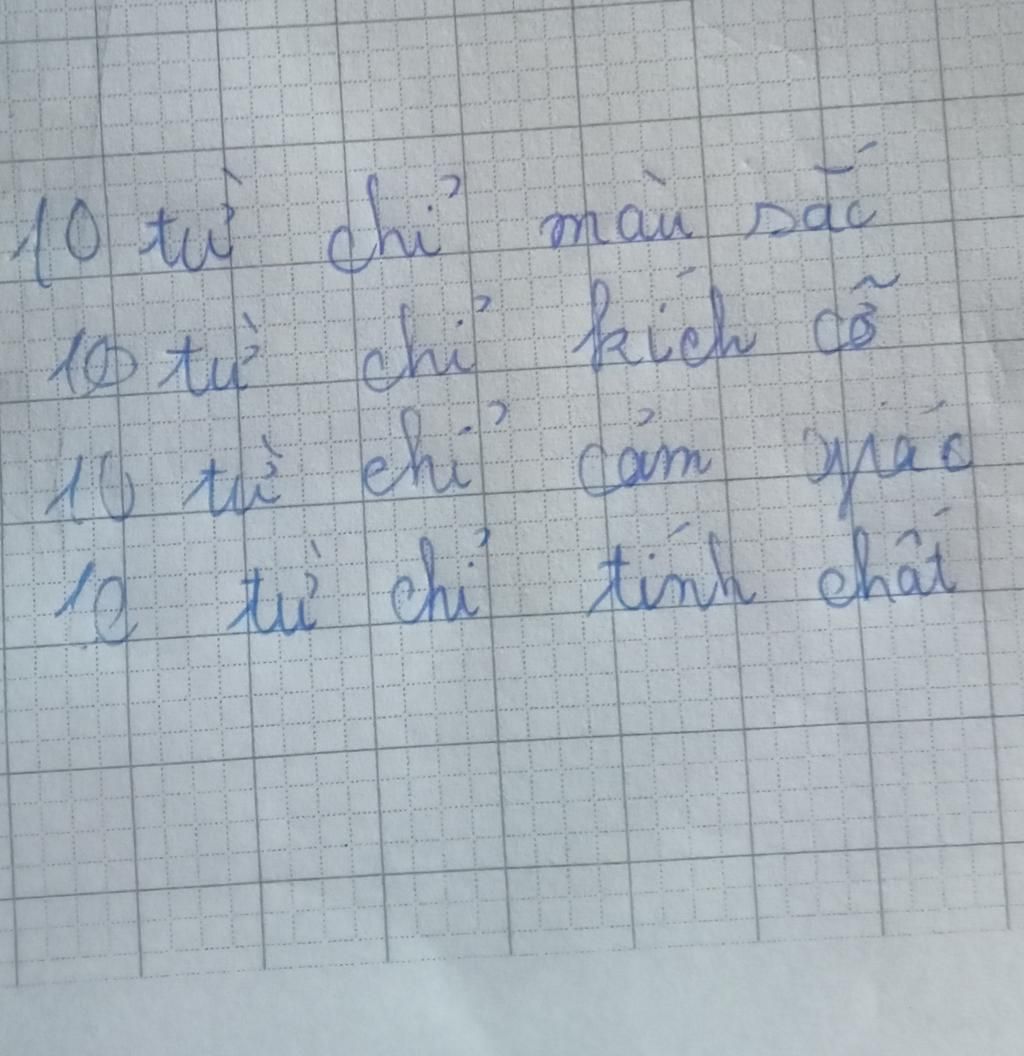 10 từ chỉ màu sắc
10 từ chỉ kích cỡ
10 từ chỉ cảm giác
10 từ chỉ tính chất